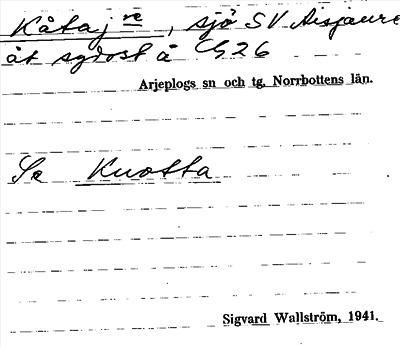 Kåtaj re, sjö SV Aisjaure
åt sydost å G26
Arjeplogs sn och tg, Norrbottens län.
Se Kuotta
Sigvard Wallström, 1941.